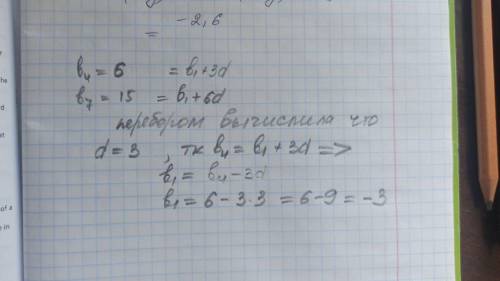 -2,6
=
b₄ = 6 = b₁+3d
b₇ = 15 = b₁+6d
перебором вычислила что
d = 3 , тк b₄ = b₁ + 3d =>
b₁ = b₄ - 3d
b₁ = 6 - 3·3 = 6 - 9 = -3